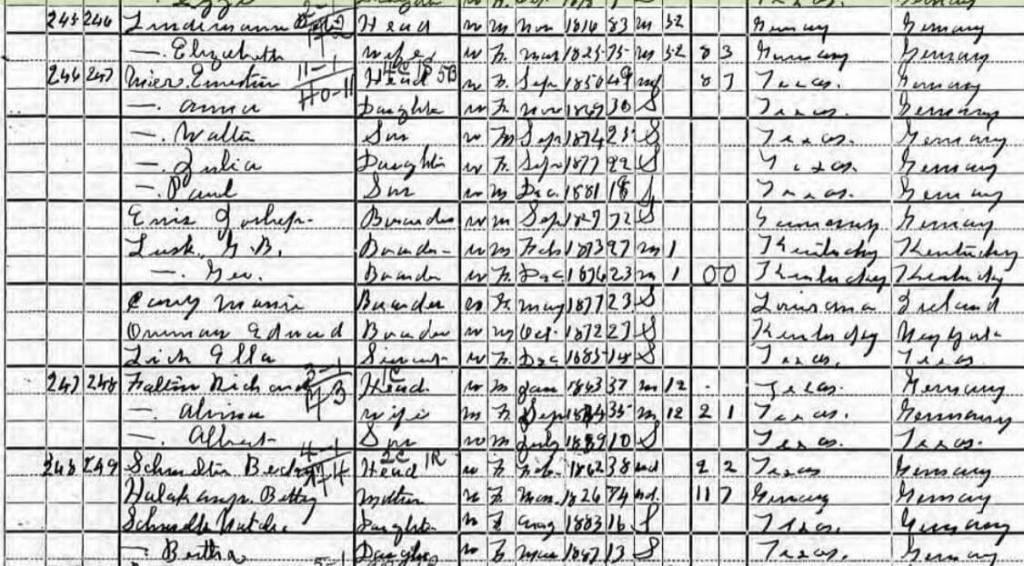 245 246 Lindemann Head w m Nov 1816 83 m 52 Germany Germany
— Elizabeth wife w F Mar 1825 75 m 52 8 3 Germany Germany
246 247 Ernestin Head w F Sep 1850 49 wd 8 7 Texas. Germany
— Anna Daughter w F Nov 1869 30 S Texas. Germany
— Walter Son w M Sep 1874 25 S Texas. Germany
— Julia Daughter w F Sep 1877 22 S Texas. Germany
— Paul Son w m Dec 1881 18 S Texas. Germany
Boarder w m Sep 1827 72 S Germany Germany
Lusk, G. B. Boarder w m Feb 1873 27 m 1 Kentucky Kentucky
— Geo. Boarder w F. Dec 1876 23 m 1 0 0 Kentucky Kentucky
Boarder w F May 1877 23 S Louisiana Ireland
Edward Boarder w m Oct 1872 27 S Kentucky
Lich Ella Servant w F. Dec 1885 14 S Texas. Texas
247 248 Faltin Richard Head w m Jan 1863 37 m 12 Texas. Germany
— Alvina wife w F. Sep 35 m 12 2 1 Texas. Germany
— Albert Son w m July 1889 10 S Texas. Texas.
248 249 Head w F Feb. 1862 38 wd 2 2 Texas Germany
Betty Mother w F. Mar. 1826 74 wd. 11 7 Germany Germany
Daughter w F Aug 1883 16 S Texas. Germany
— Bertha Daughter w F. Mar 1887 13 S Texas. Germany